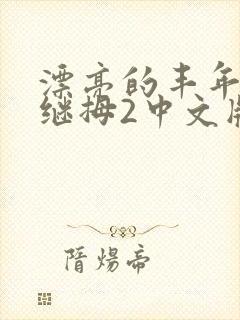 漂亮的丰年
继拇2中文版
隋炀帝